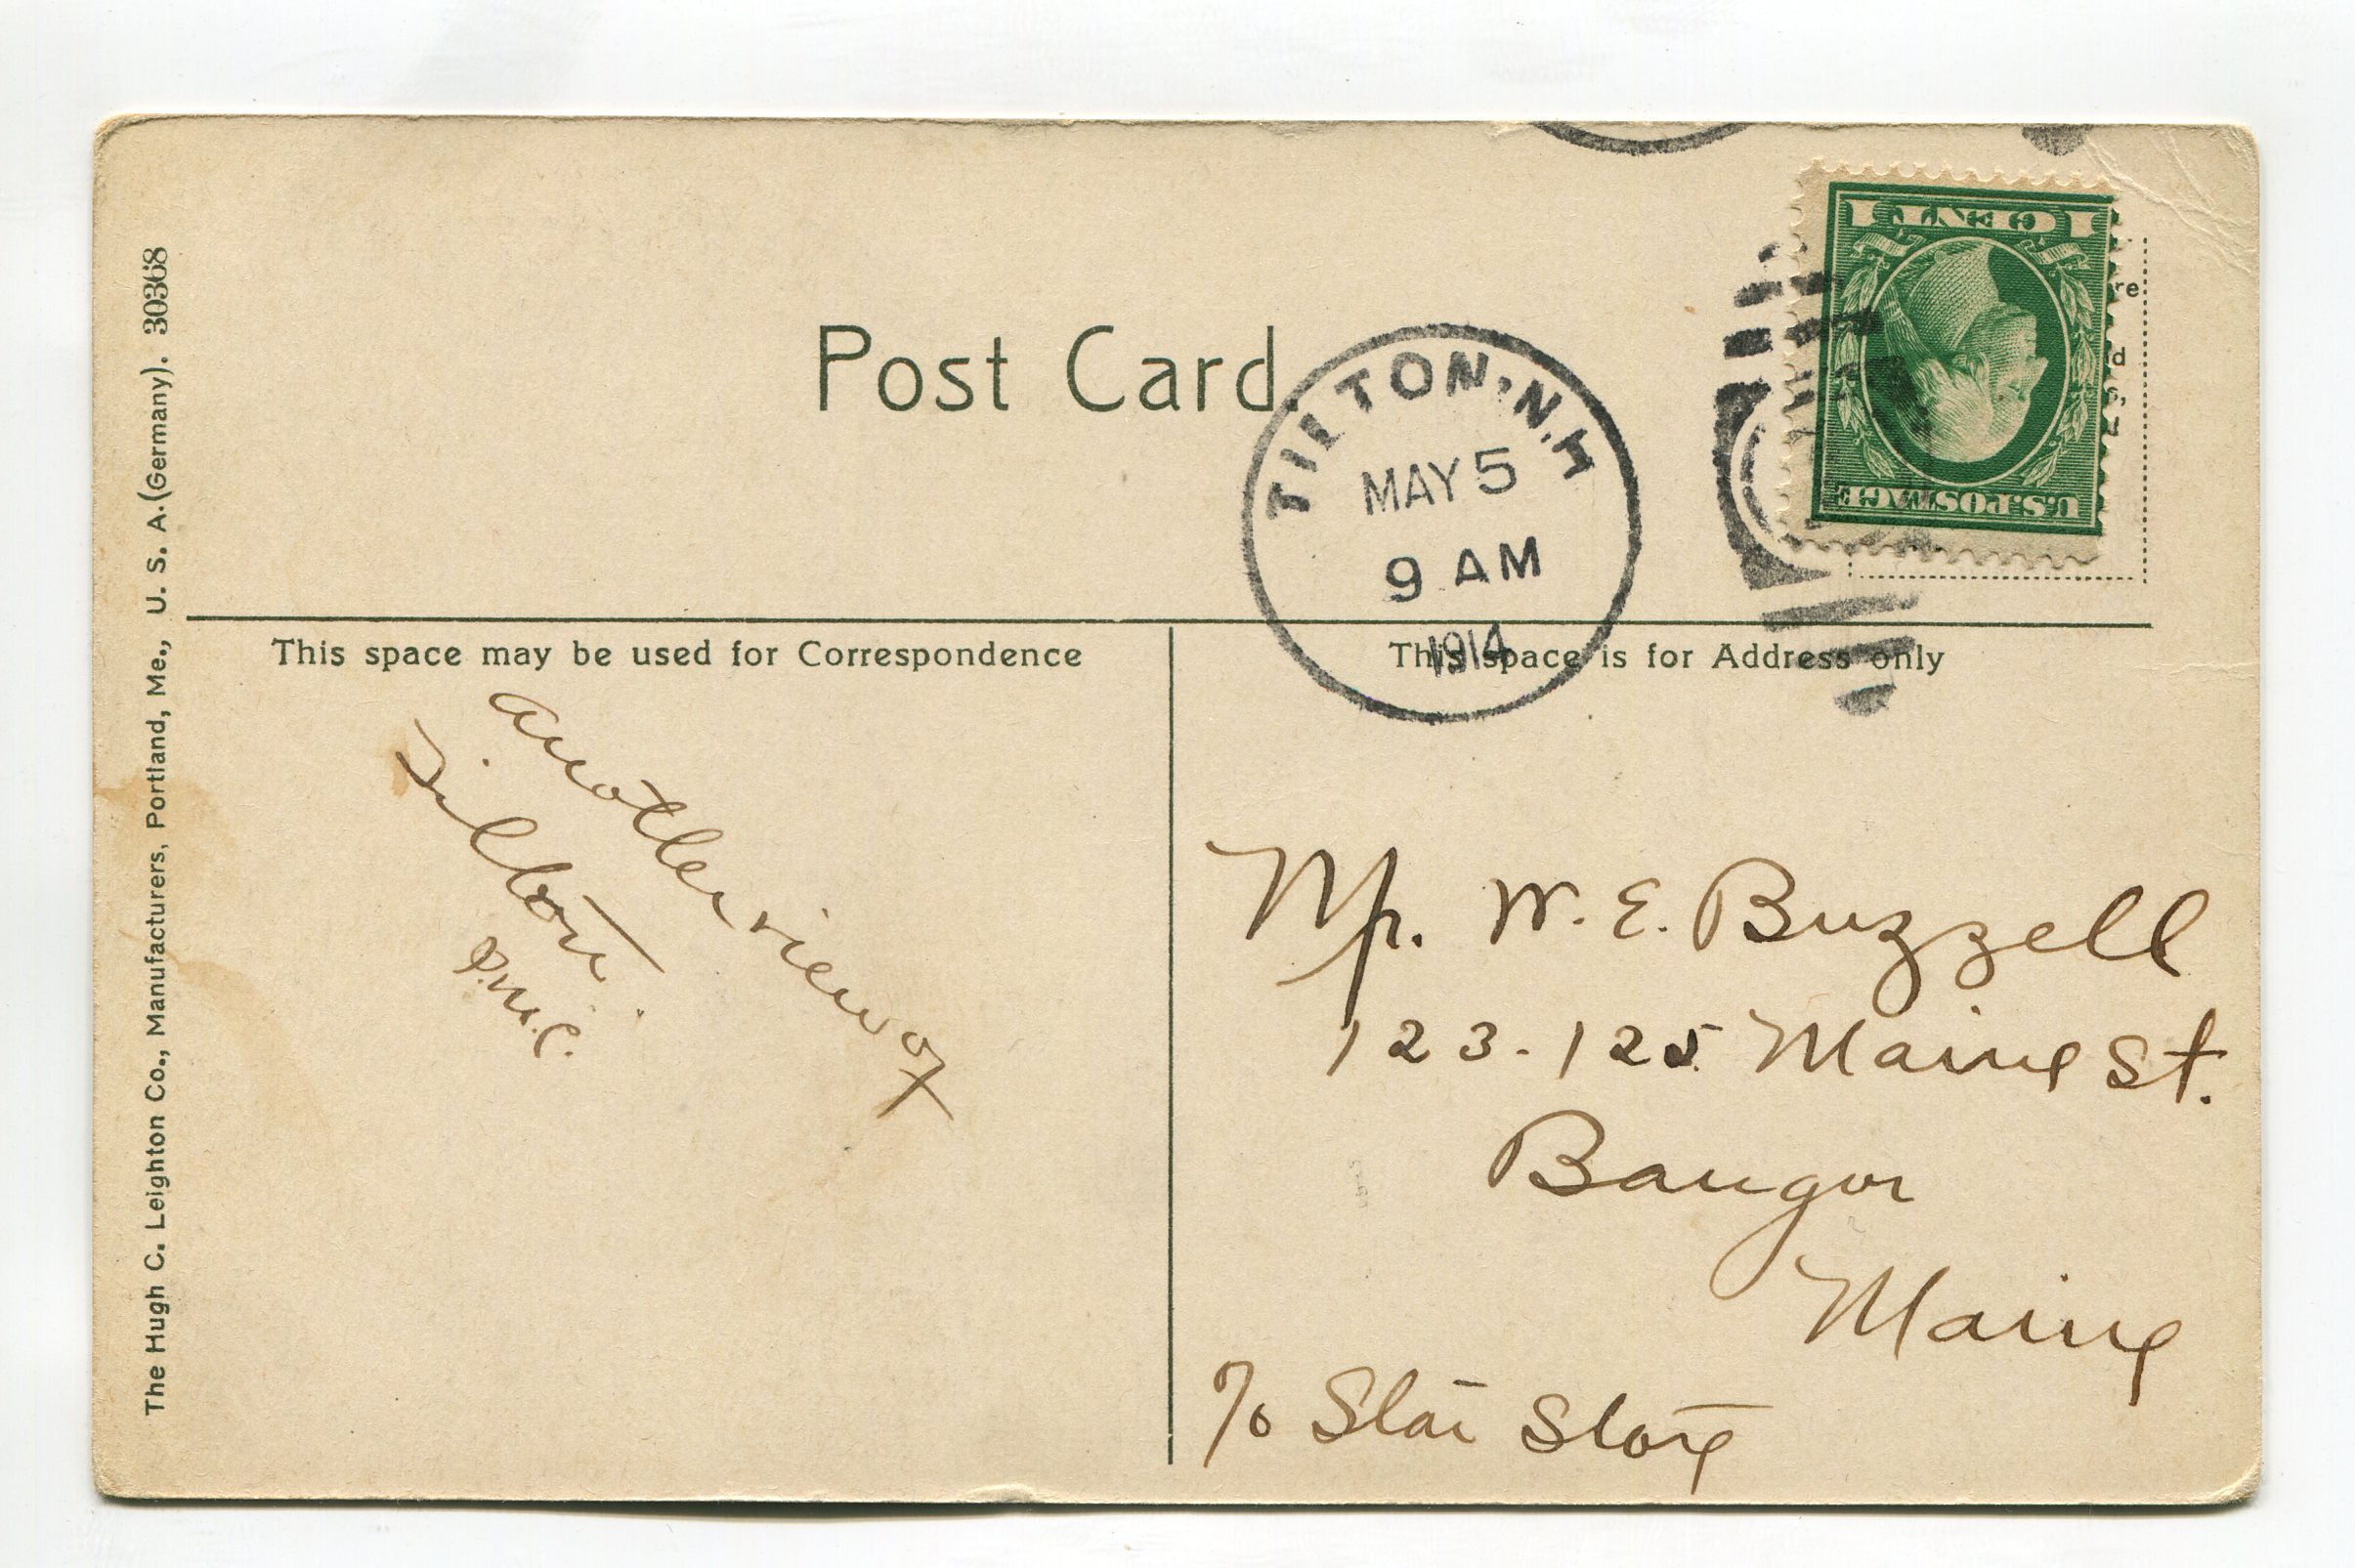 Post Card.
TILTON, N.H.
MAY 5
9 AM
1914
1 CENT 1
U.S. POSTAGE
re
d
s,
This space may be used for Correspondence
This space is for Address only
Another view of
Tilton.
Mr. W. E. Buzzell
123-125 Maine St.
Bangor
Maine
c/o Star Store
The Hugh C. Leighton Co., Manufacturers, Portland, Me., U. S. A. (Germany). 30368